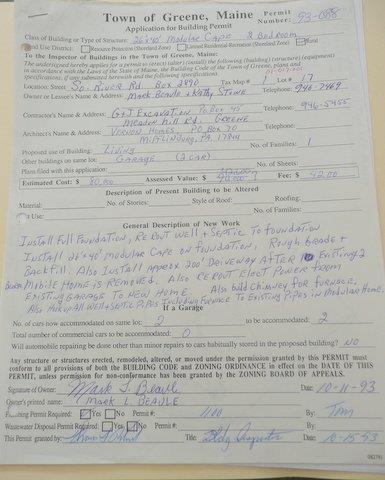 Town of Greene, Maine Permit Number: 93-088
Application for Building Permit
Class of Building or Type of Structure: 26'x40' Modular Cape 2 Bedroom
Land Use District: Resource Protection (Shoreland Zone) Limited Residential-Recreation (Shoreland Zone) Rural
To the Inspector of Buildings in the Town of Greene, Maine:
The undersigned hereby applies for a permit to (erect) (alter) (install) the following (building) (structure) (equipment)
in accordance with the Laws of the State of Maine, the Building Code of the Town of Greene, plans and
specifications, if any, submitted herewith and the following specifications:
Location: Street: So. River Rd. Box 2890 Tax Map # 1 Lot # 17
Owner or Lessee's Name & Address: Mark Beaule + Kathy Stone Telephone: 946-7469
Contractor's Name & Address: G+J Excavation PO Box 45 Telephone: 946-5455
Meadow Hill Rd. Greene
Architect's Name & Address: Vernon Homes, PO Box 70 Telephone:
Mifflinburg, PA. 17844
Proposed use of Building: Living No. of Families: 1
Other buildings on same lot: Garage (2 car)
Plans filed with this application: No. of Sheets:
Estimated Cost: $ 80,000 Assessed Value: $ Fee: $ 42.00
Description of Present Building to be Altered
Material: No. of Stories: Style of Roof: Roofing:
Use: No. of Families:
General Description of New Work
Install Full Foundation, Re Rout Well + Septic To Foundation
Install 26'x40' Modular Cape on Foundation, Rough Grade +
Backfill. Also Install Approx 200' Driveway After Existing 2
Bdrm Mobile Home Is Removed. Also ReRout Elect Power From
Existing Garage to New Home Also Build Chimney For Furnace.
Also Hookup All Well + Septic Pipes Including Furnace To Existing Pipes in Modular Home.
If a Garage
No. of cars now accommodated on same lot: 2 to be accommodated: 2
Total number of commercial cars to be accommodated: 0
Will automobile repairing be done other than minor repairs to cars habitually stored in the proposed building? No
Any structure or structures erected, remodeled, altered, or moved under the permission granted by this PERMIT must
conform to all provisions of both the BUILDING CODE and ZONING ORDINANCE in effect on the DATE OF THIS
PERMIT, unless permission for non-conformance has been granted by the ZONING BOARD OF APPEALS.
Signature of Owner: Mark L. Beaule Date: 10-11-93
Owner's printed name: Mark L. Beaule
Plumbing Permit Required: Yes No Permit #: 1100 By: Tom
Wastewater Disposal Permit Required: Yes No Permit #: By:
This Permit granted by: Title: Bldg Inspector Date: 10-15-93